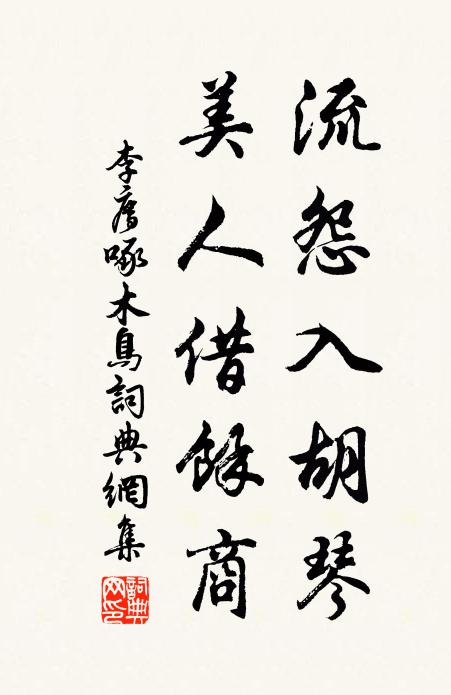 流怨入胡琴
美人借餘商
李廌啄木鳥詞典網集
詞典網印